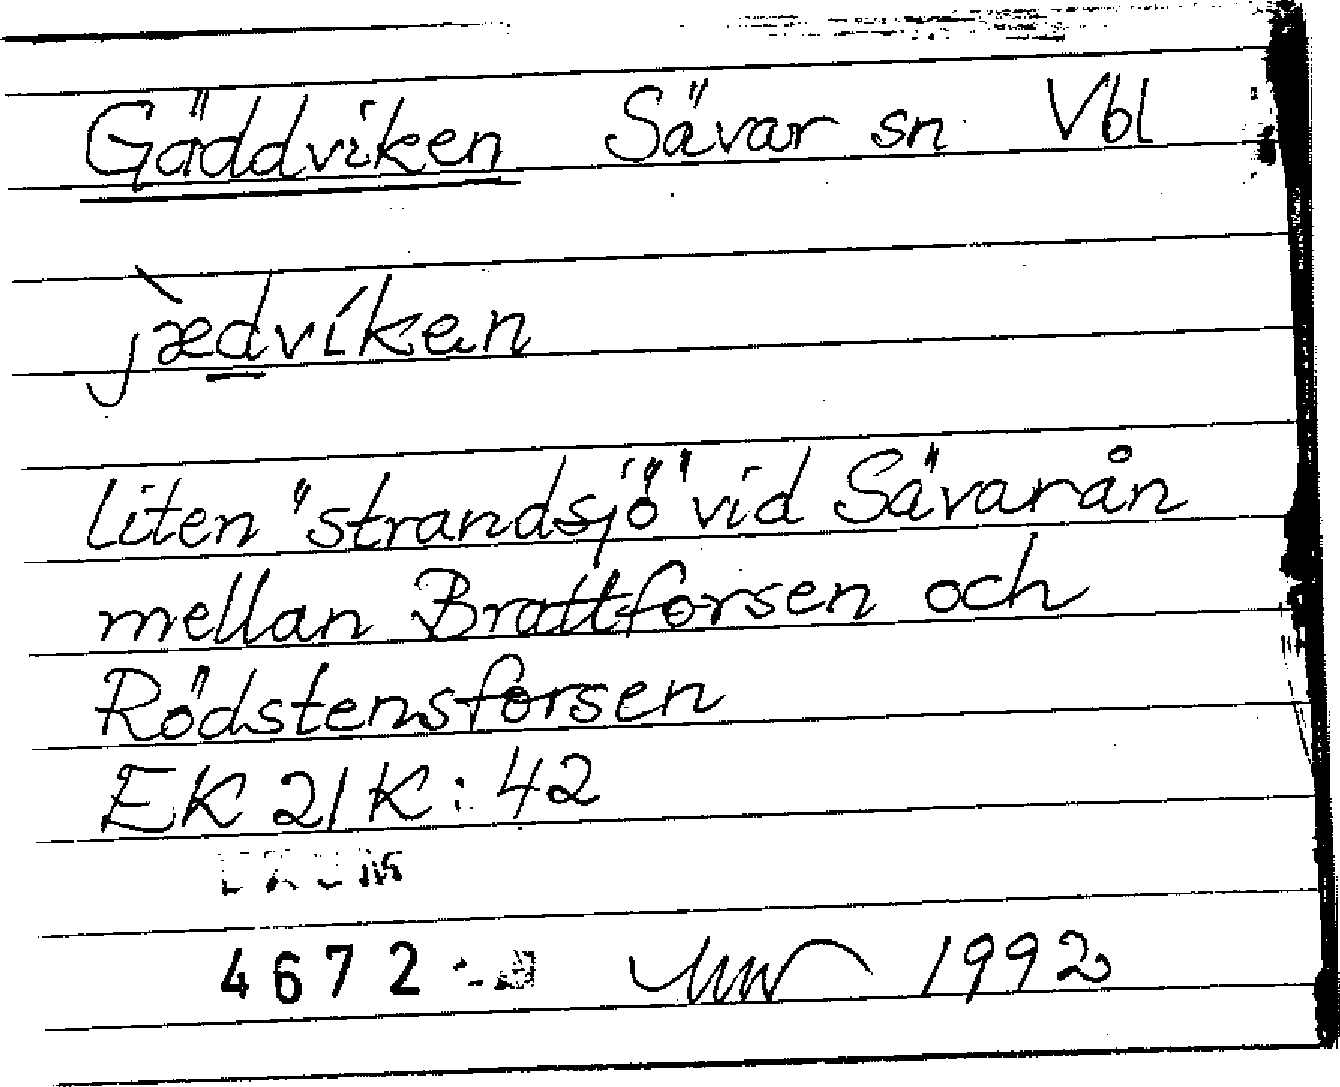 Gäddviken Sävar sn Vbl
j̀ædvíken
liten "strandsjö" vid Sävarån
mellan Brattforsen och
Rödstensforsen
EK 21K: 42
DAUM
4672
1992